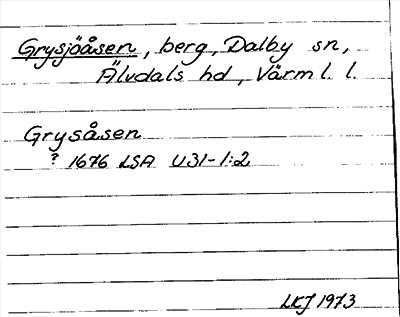 Grysjöåsen, berg, Dalby sn,
Älvdals hd, Värml. l.
Grysåsen
? 1676 LSA U31-1:2
LKJ 1973